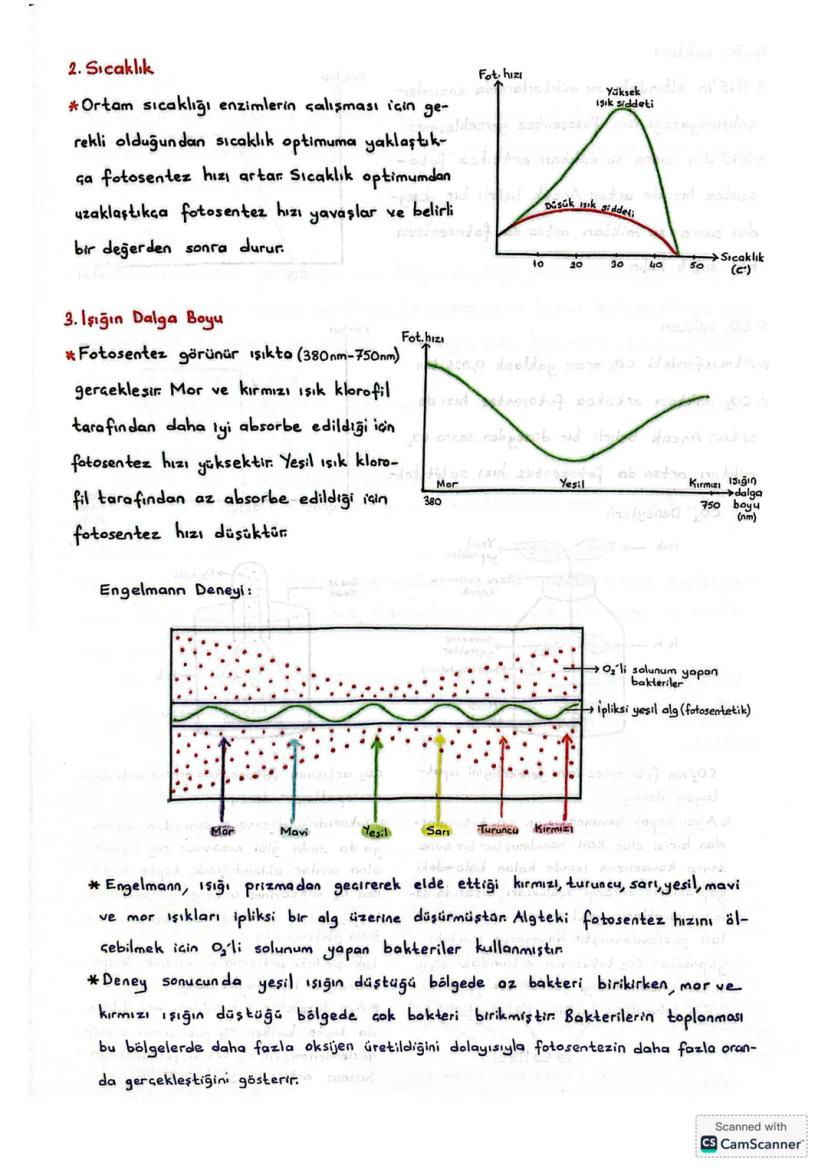 2. Sıcaklık
* Ortam sıcaklığı enzimlerin çalışması için ge-
rekli olduğundan sıcaklık optimuma yaklaştık-
ça fotosentez hızı artar. Sıcaklık optimumdan
uzaklaştıkca fotosentez hızı yavaşlar ve belirli
bir değerden sonra durur.
Fot. hızı
Yüksek
ışık şiddeti
Düşük ışık şiddeti
10 20 30 40 50
Sıcaklık
(C°)
3. Işığın Dalga Boyu
* Fotosentez görünür ışıkta (380nm-750nm)
gerçekleşir. Mor ve kırmızı ışık klorofil
tarafından daha iyi absorbe edildiği için
fotosentez hızı yüksektir. Yeşil ışık kloro-
fil tarafından az absorbe edildiği için
fotosentez hızı düşüktür.
Fot. hızı
Mor Yeşil Kırmızı
380 750
Işığın
dalga
boyu
(nm)
Engelmann Deneyi:
O₂'li solunum yapan
bakteriler
ipliksi yeşil alg (fotosentetik)
Mor Mavi Yeşil Sarı Turuncu Kırmızı
* Engelmann, ışığı prizmadan geçirerek elde ettiği kırmızı, turuncu, sarı, yeşil, mavi
ve mor ışıkları ipliksi bir alg üzerine düşürmüştür. Algteki fotosentez hızını öl-
çebilmek için O₂'li solunum yapan bakteriler kullanmıştır.
* Deney sonucunda yeşil ışığın düştüğü bölgede az bakteri birikirken, mor ve
kırmızı ışığın düştüğü bölgede çok bakteri birikmiştir. Bakterilerin toplanması
bu bölgelerde daha fazla oksijen üretildiğini dolayısıyla fotosentezin daha fazla oran-
da gerçekleştiğini gösterir.
Scanned with
CS CamScanner